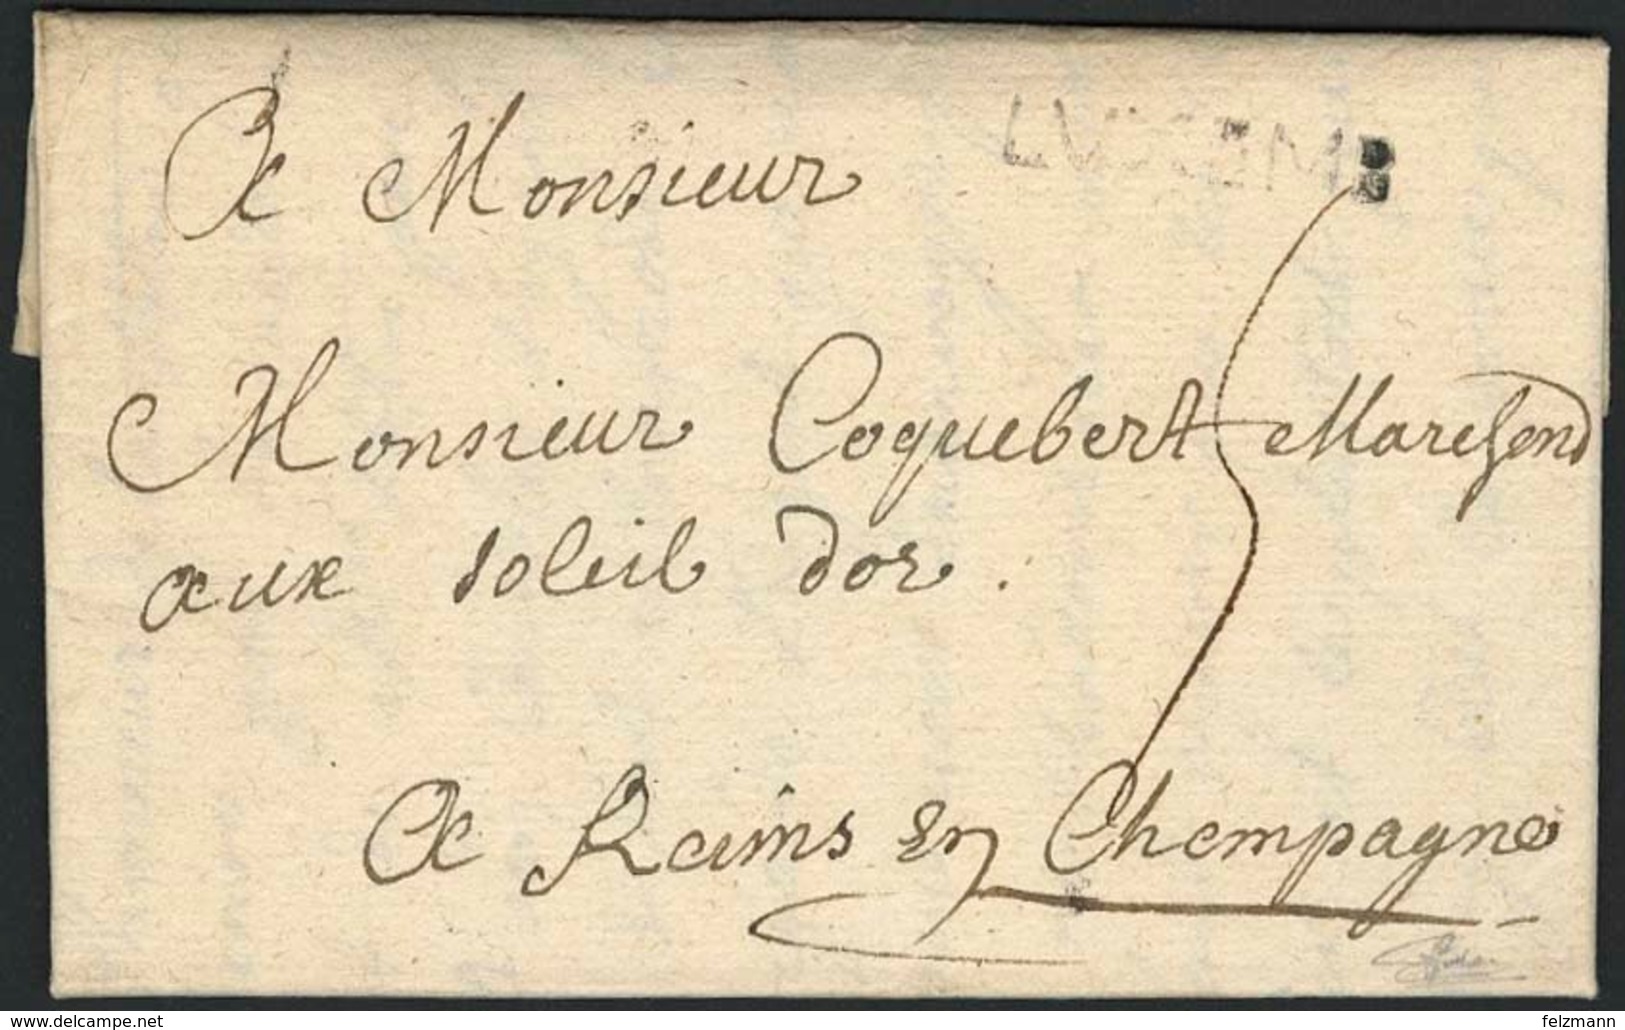 A Monsieur
LUXEMB
Monsieur Coquebert Marchand
aux soleil dor.
A Raims en Champagne
www.delcampe.net
felzmann